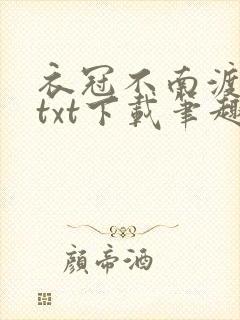 衣冠不南渡
txt下載筆趣
顏帝酒